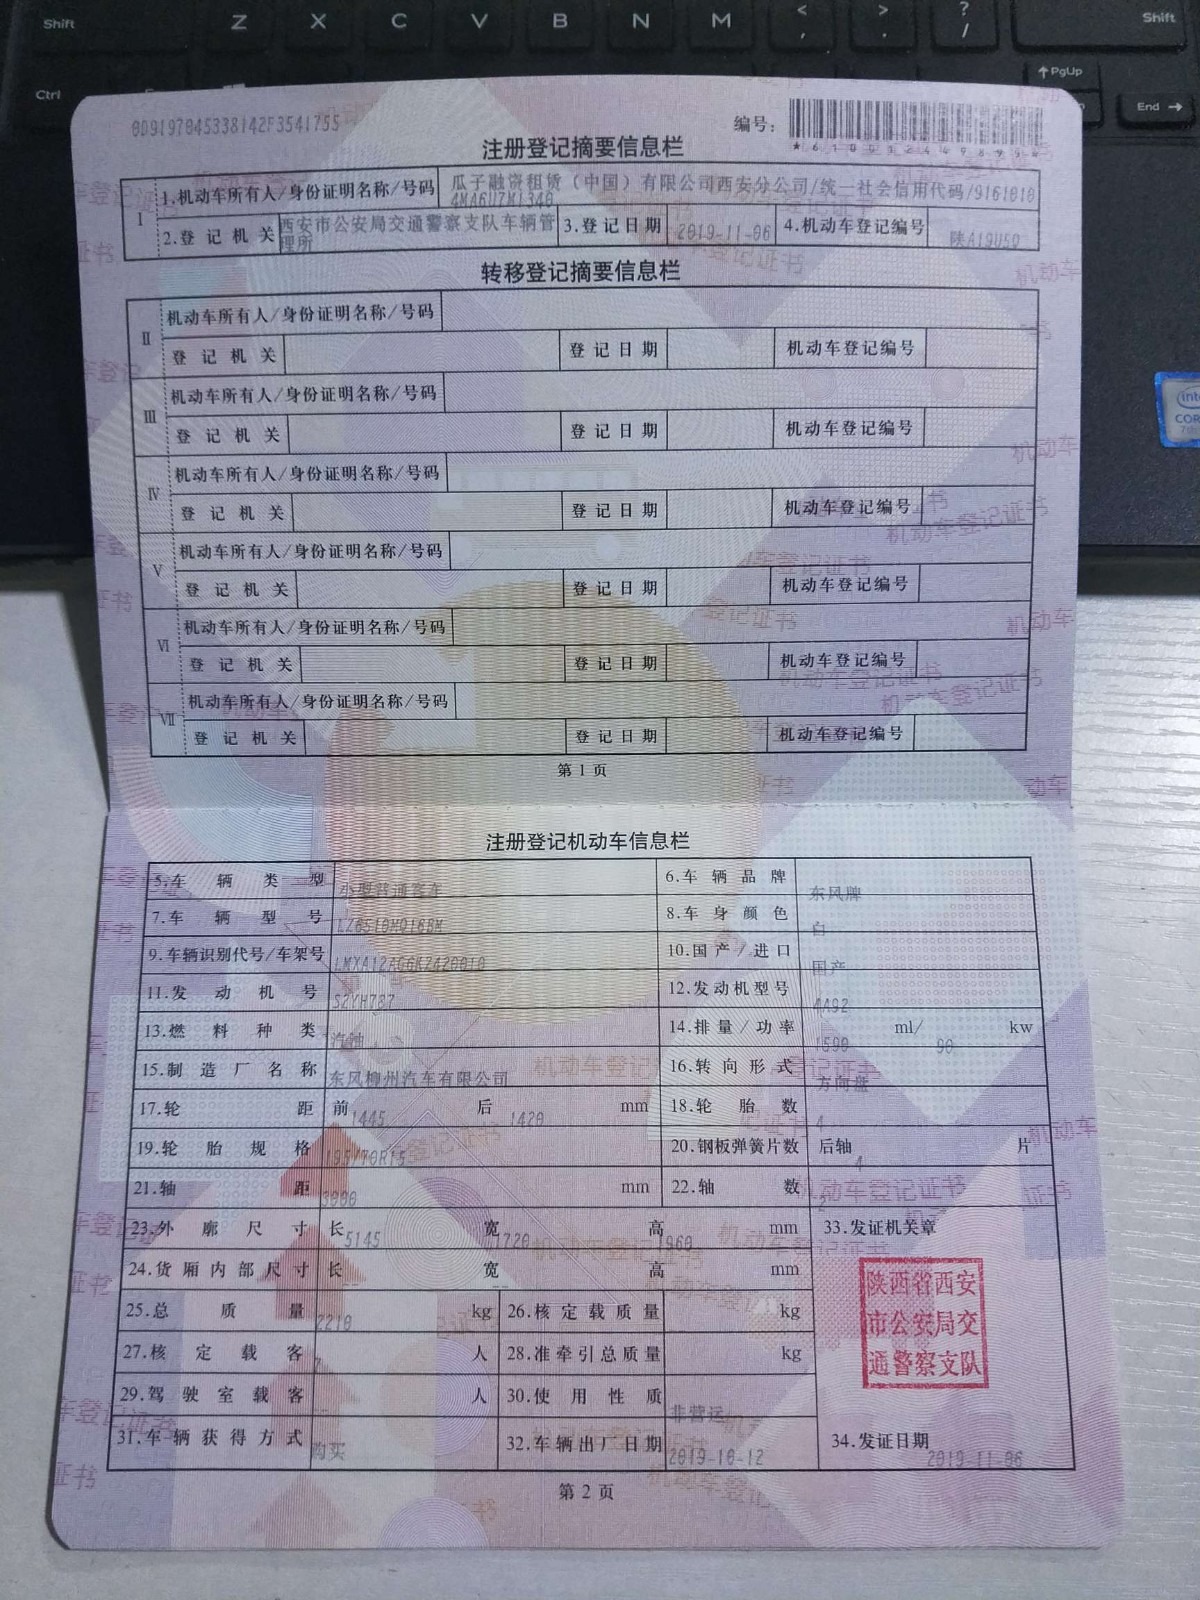 Shift Z X C V B N M < , > . ? / Shift
Ctrl PgUp End
0D9197045338142F3541755
编号：
注册登记摘要信息栏
I 1.机动车所有人/身份证明名称/号码 瓜子融资租赁（中国）有限公司西安分公司/统一社会信用代码/9161010
4MA6U7M1340
2.登记机关 西安市公安局交通警察支队车辆管理所 3.登记日期 2019-11-06 4.机动车登记编号 陕A19U5Q
转移登记摘要信息栏
II 机动车所有人/身份证明名称/号码
登记机关 登记日期 机动车登记编号
III 机动车所有人/身份证明名称/号码
登记机关 登记日期 机动车登记编号
IV 机动车所有人/身份证明名称/号码
登记机关 登记日期 机动车登记编号
V 机动车所有人/身份证明名称/号码
登记机关 登记日期 机动车登记编号
VI 机动车所有人/身份证明名称/号码
登记机关 登记日期 机动车登记编号
VII 机动车所有人/身份证明名称/号码
登记机关 登记日期 机动车登记编号
第1页
注册登记机动车信息栏
5.车辆类型 小型普通客车 6.车辆品牌 东风牌
7.车辆型号 LZ6510MQ16BM 8.车身颜色 白
9.车辆识别代号/车架号 LMXA12AG6KZ420010 10.国产/进口 国产
11.发动机号 S2YH787 12.发动机型号 4A92
13.燃料种类 汽油 14.排量/功率 1590 ml/ 90 kw
15.制造厂名称 东风柳州汽车有限公司 16.转向形式 方向盘
17.轮距 前 1445 后 1420 mm 18.轮胎数 4
19.轮胎规格 195/70R15 20.钢板弹簧片数 后轴 4 片
21.轴距 3000 mm 22.轴数 2
23.外廓尺寸 长 5145 宽 1720 高 1960 mm 33.发证机关章
24.货厢内部尺寸 长 -- 宽 -- 高 -- mm
25.总质量 2210 kg 26.核定载质量 kg
27.核定载客 7 人 28.准牵引总质量 kg
29.驾驶室载客 -- 人 30.使用性质 非营运
31.车辆获得方式 购买 32.车辆出厂日期 2019-10-12 34.发证日期 2019-11-06
陕西省西安
市公安局交
通警察支队
第2页